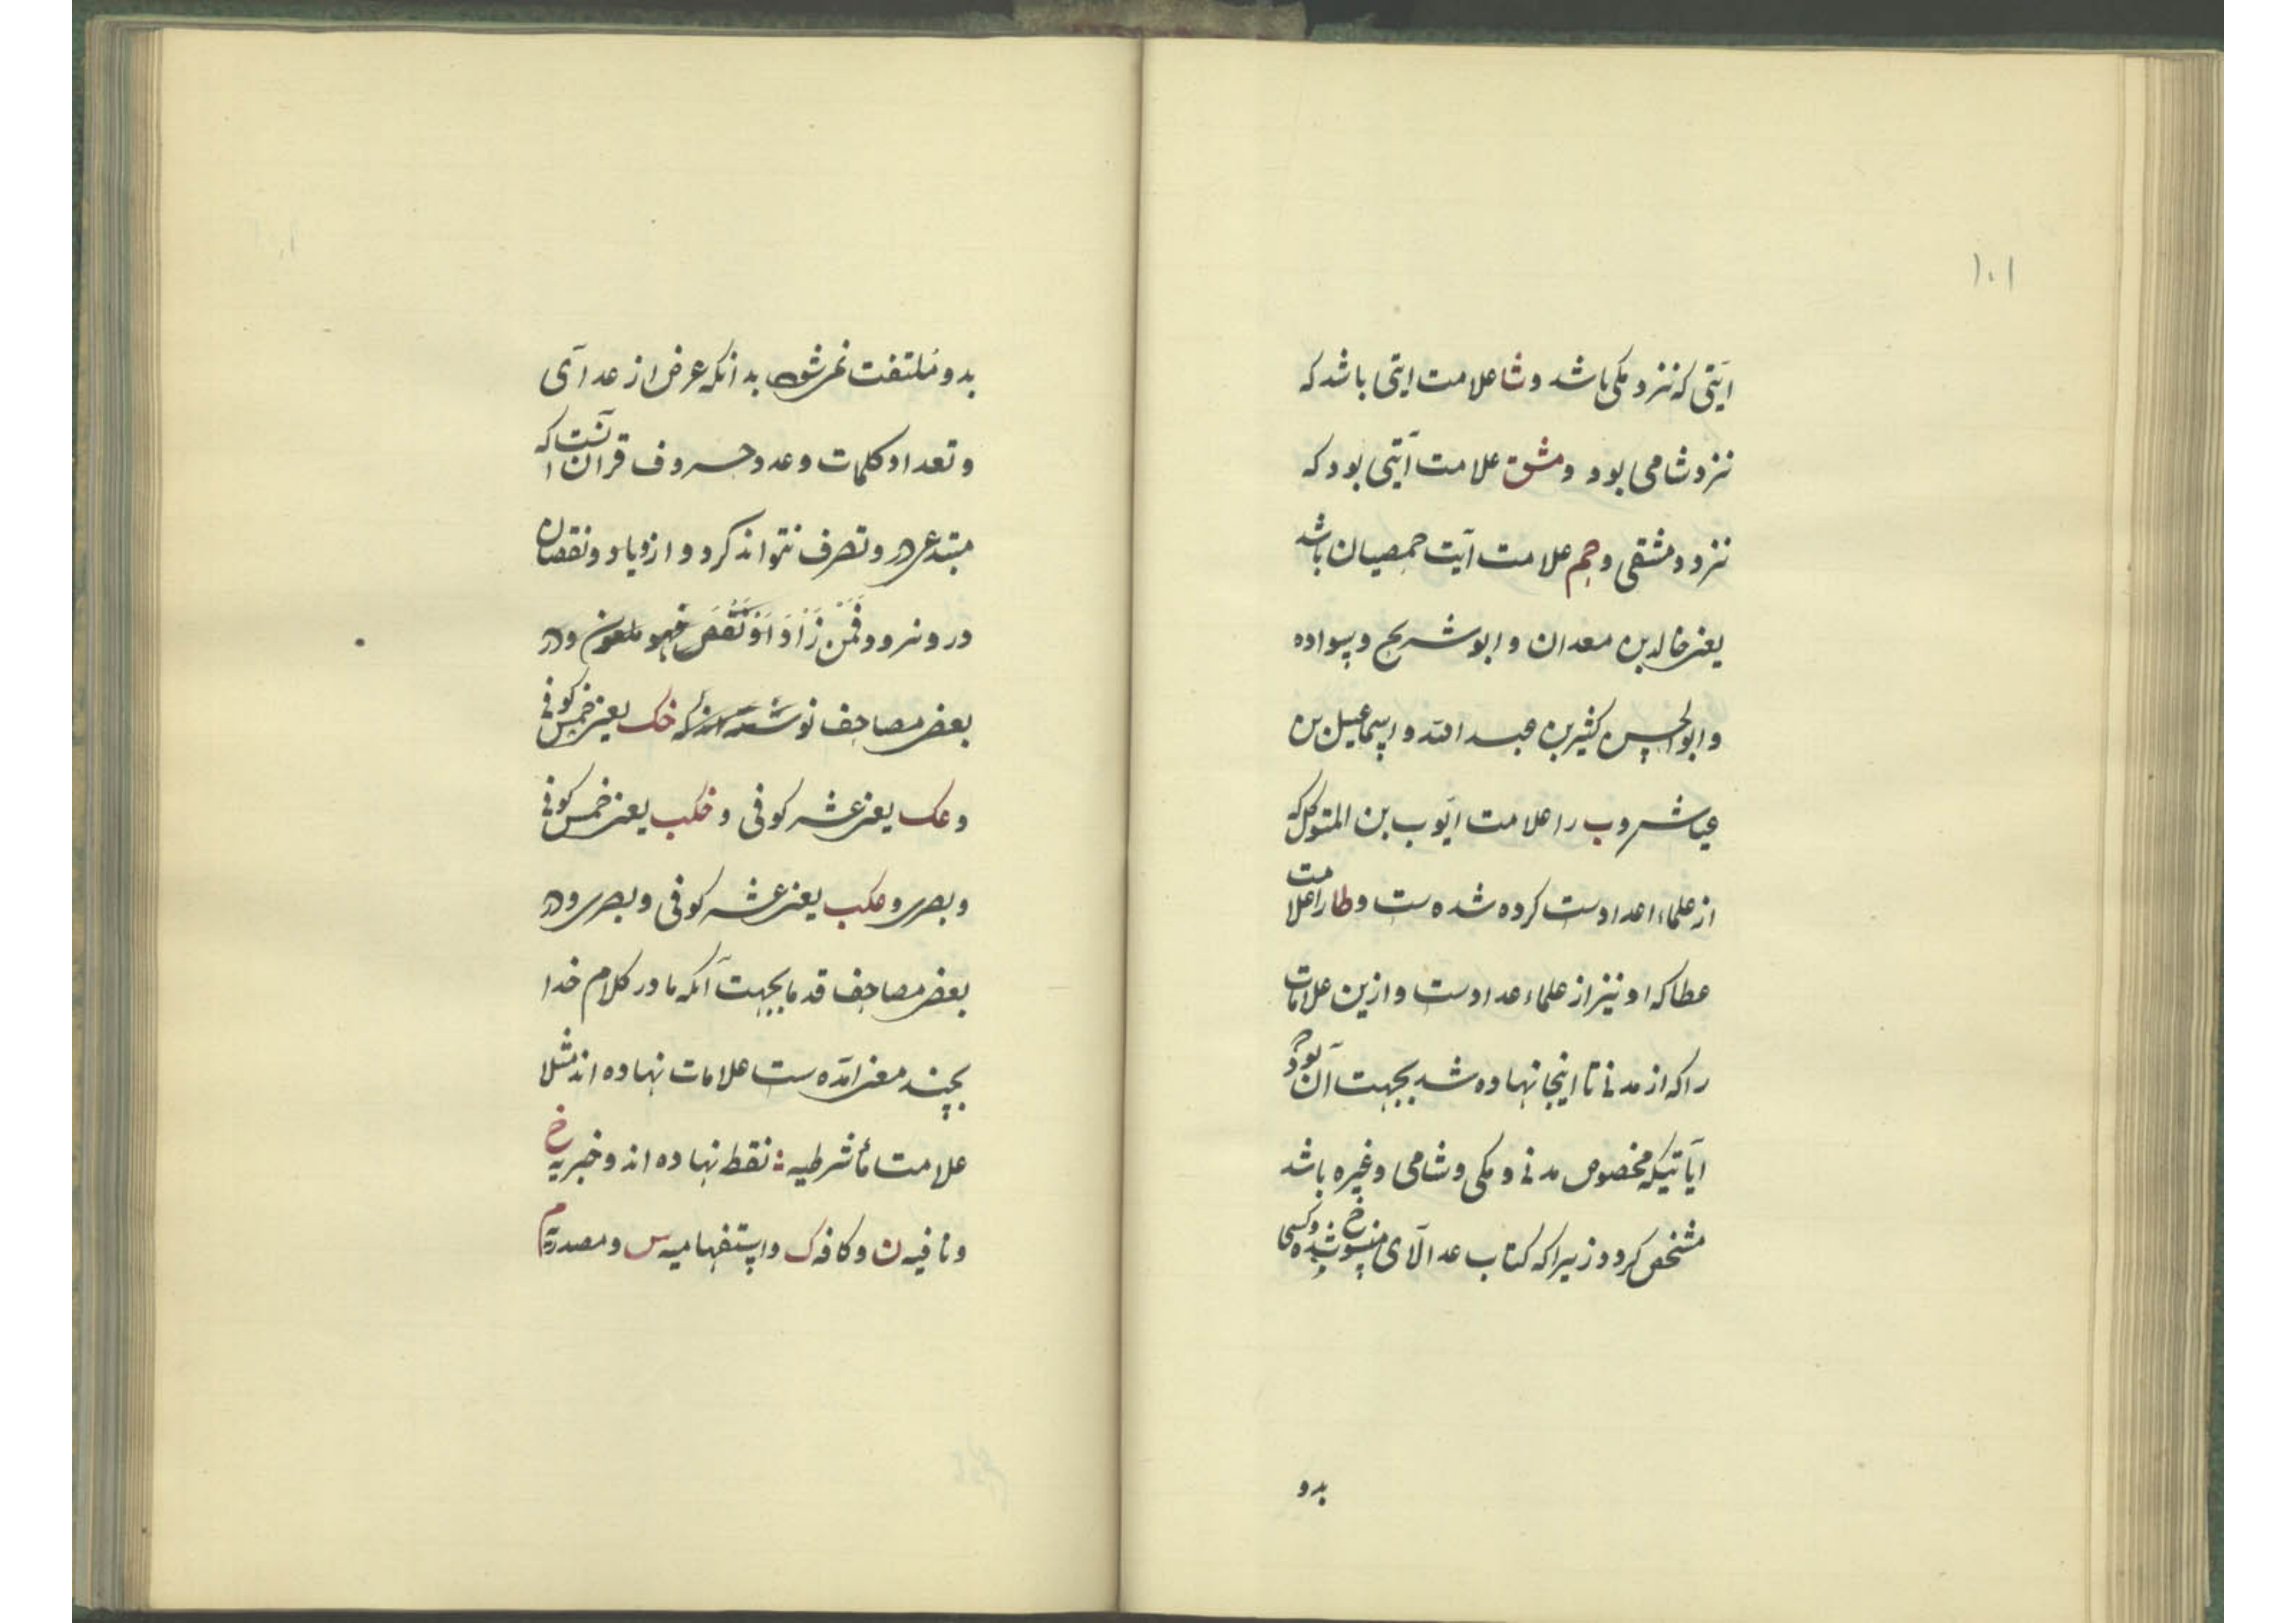 ۱۰۱
ایتی که نزد مکی باشد و شا علامت ایتی باشد که
نزد شامی بود و مشق علامت آیتی بود که
نزد دمشقی و حم علامت آیت حمصیان باشد
یعنی خالد بن معدان و ابو شریح و سواده
و ابو الحسن کثیر بن عبد الله و اسماعیل بن
عیاش و ب را علامت ایّوب بن المتوکل که
از علماء اعدادست کرده شده ست و طا را علامت
عطا که او نیز از علماء عدادست و ازین علامات
را که از مدنی تا اینجا نهاده شد بجهت آن بود
آیاتیکه مخصوص مدنی و مکی و شامی و غیره باشد
مشخص کردد زیرا که کتاب عد الآی منسوخ شده و کسی
بدو
بدو مُلتفت نمی شود بدانکه غرض از عد آی
و تعداد کلمات و عدد حروف قرآن آنست که
مبتدعی در و تصرف نتواند کرد و ازدیاد و نقصان
در و نرود فَمَنْ زَادَ اَوْ نَقَصَ فهو ملعون و در
بعضی مصاحف نوشته اند که خک یعنی خمس کوفی
و عک یعنی عشر کوفی و خکب یعنی خمس کوفی
و بصری و عکب یعنی عشر کوفی و بصری و در
بعضی مصاحف قدما بجهت آنکه ما در کلام خدا
بچند معنی آمده ست علامات نهاده اند مثلا
علامت ماء شرطیه : نقط نهاده اند و خبریه خ
و نافیه ن و کافه ک و استفهامیه س و مصدریه م